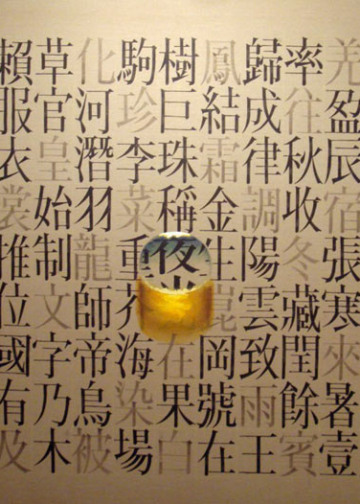 羌盈辰宿張寒來暑壹
率往秋收冬藏閏餘賓
歸成律調陽雲致雨王
鳳結霜金生崑岡號在
樹巨珠稱夜光在果白
駒珍李菜重芥海染場
化河潛羽龍師帝鳥被
草官皇始制文字乃木
賴服衣裳推位國有及